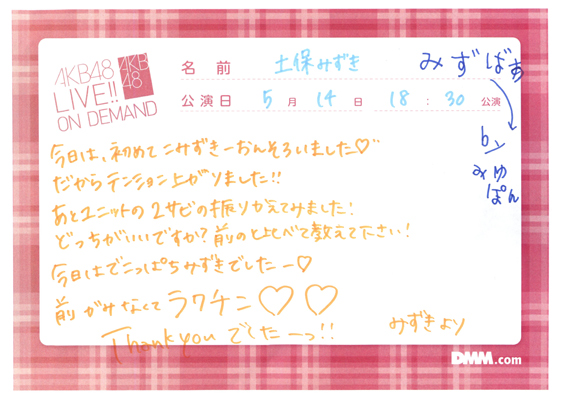 AKB48
LIVE!!
ON DEMAND
AKB
48
名前 土保みずき
公演日 5月14日 18:30公演
みずばぁ
by
みゆ
ぽん
今日は、初めてこみずきーおんそろいました♡
だからテンション上がりました!!
あとユニットの2サビの振りかえてみました!
どっちがいいですか?前のと比べて教えて下さい!
今日はでこっぱちみずきでしたー♡
前がみなくてラクチン♡♡
Thank you でしたーっ!!
みずきより
DMM.com